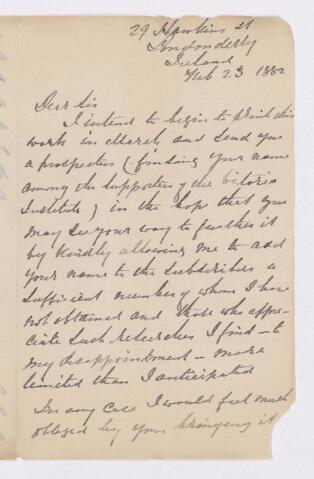 29 Hawkins St
Londonderry
Ireland
Feb 23 1882
Dear Sir
I intend to begin to print this
work in March, and send you
a prospectus (finding your name
among the supporters of the Victoria
Institute) in the hope that you
may see your way to further it
by kindly allowing me to add
your name to the subscribers a
sufficient number of whom I have
not obtained and those who appre-
ciate such researches I find - to
my disappointment - more
limited than I anticipated
In any case I would feel much
obliged by your bringing it